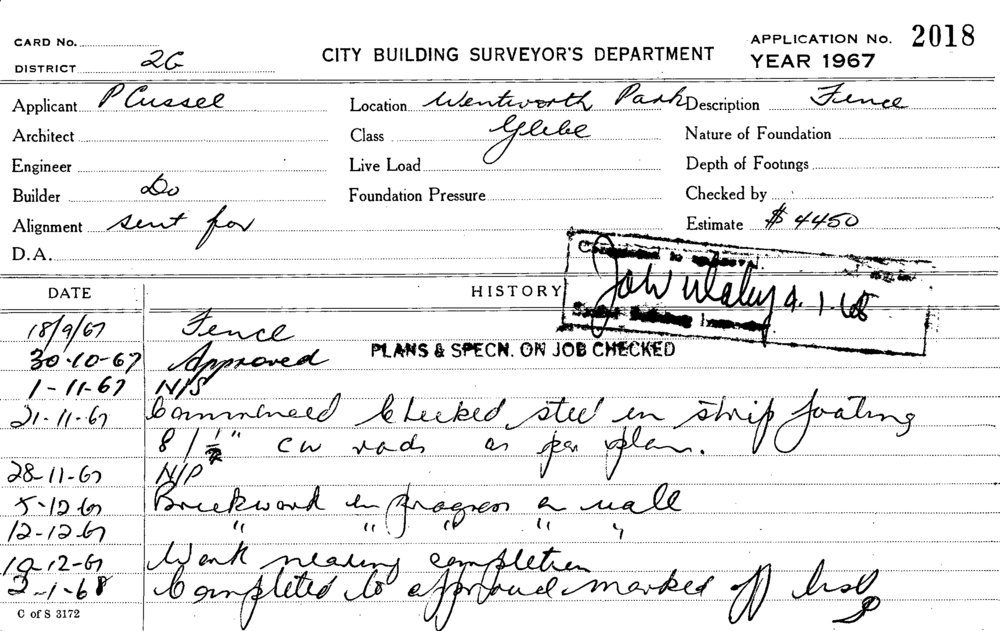 CARD No.
DISTRICT 2G
CITY BUILDING SURVEYOR'S DEPARTMENT
APPLICATION No. 2018
YEAR 1967
Applicant P Cussel Location Wentworth Park Description Fence
Architect Class Glebe Nature of Foundation
Engineer Live Load Depth of Footings
Builder Do Foundation Pressure Checked by
Alignment sent for Estimate $ 4450
D.A.
Completed to approval
4.1.68
Building
DATE HISTORY
18/9/67 Fence
30-10-67 Approved PLANS & SPECN. ON JOB CHECKED
1-11-67 N/S
21-11-67 Commenced Checked steel in strip footing
8/ " CW rods as per plan.
28-11-67 N/P
5-12-67 Brickword in progress on wall
12-12-67 " " " " "
12-67 Work nearing completion
2-1-68 Completed to approval marked off list
C of S 3172